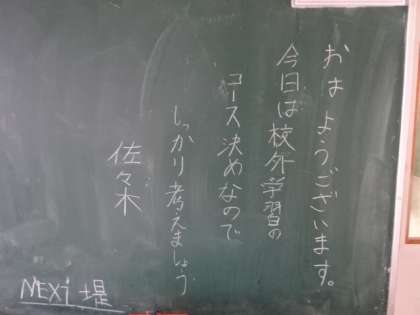 おはようございます。
今日は校外学習の
コース決めなので
しっかり考えましょう
佐々木
NEXi 堤